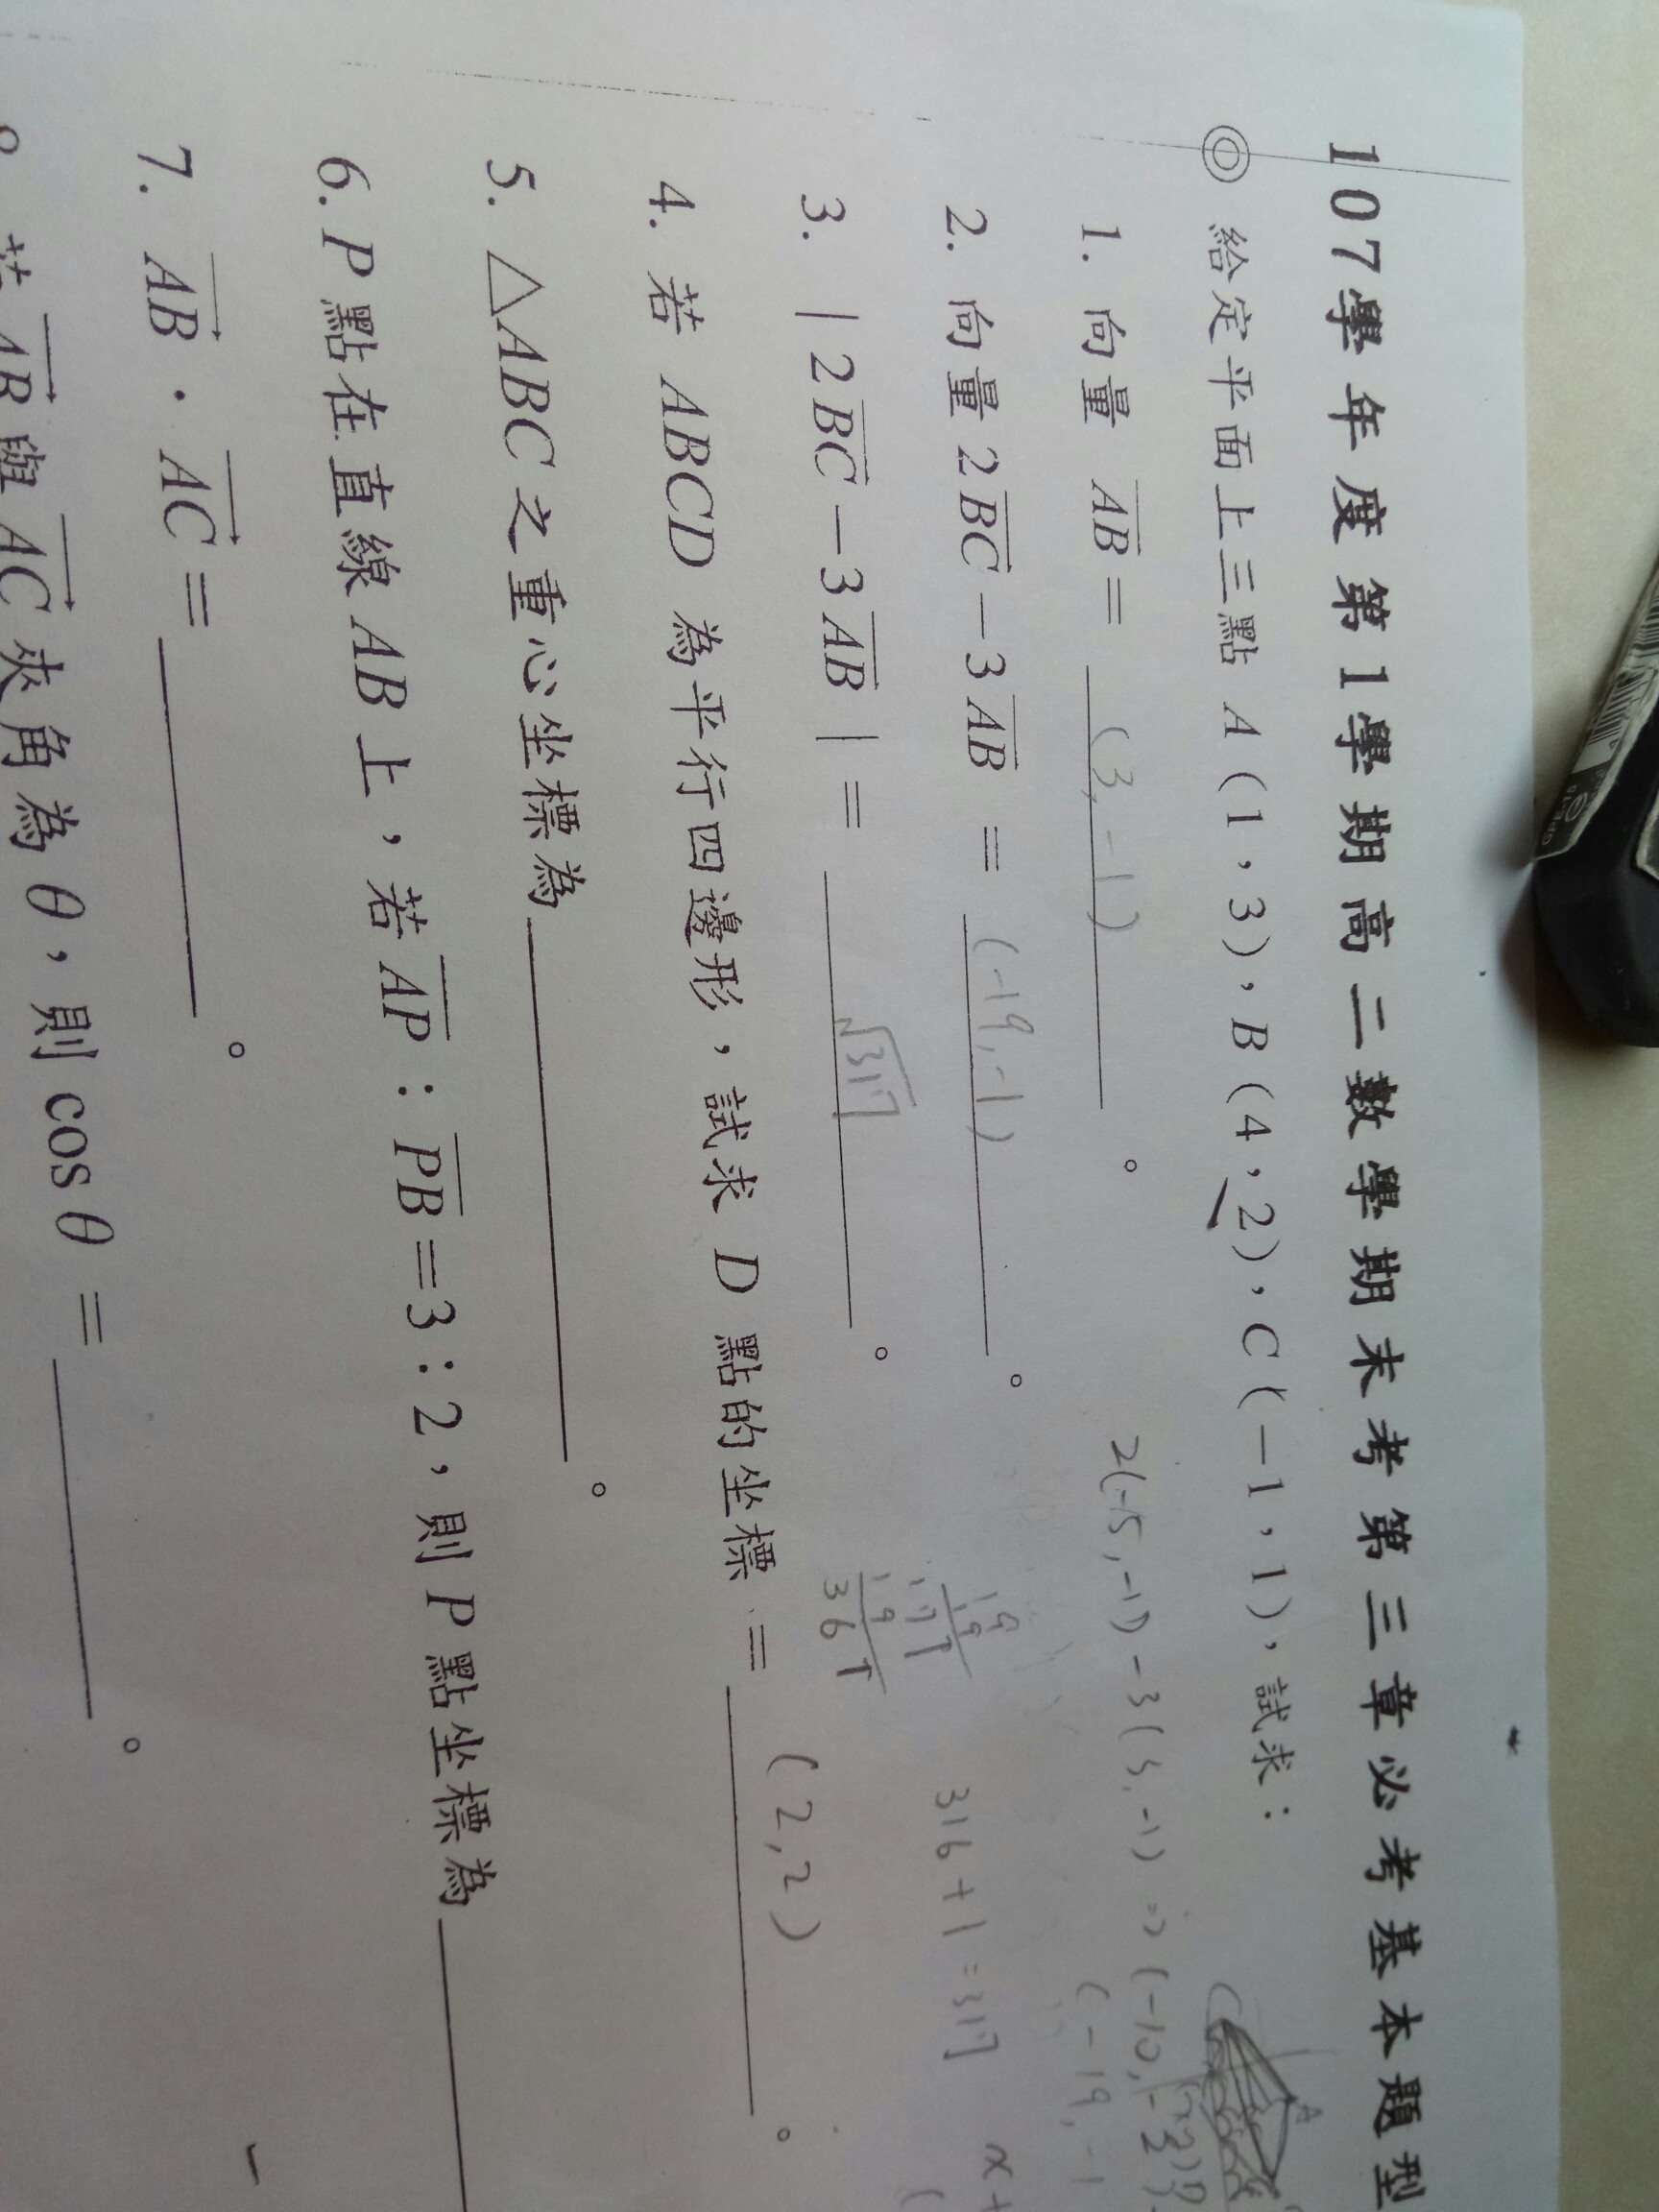 107學年度第1學期高二數學期末考第三章必考基本題型
◎ 給定平面上三點 A(1,3)、B(4,2)、C(-1,1)，試求：
1. 向量 AB = (3,-1)。
2(-5,-1)-3(3,-1) ⇒ (-10,-2)
(-19,-1
2. 向量 2BC-3AB = (-19,-1)。
3. |2BC-3AB| = √317。
19
19
171
19
361
316+1=317
4. 若 ABCD 為平行四邊形，試求 D 點的坐標 = (2,2)。
5. △ABC 之重心坐標為。
6. P 點在直線 AB 上，若 AP：PB=3：2，則 P 點坐標為
7. AB · AC =。
若 AB 與 AC 夾角為 θ，則 cos θ =。